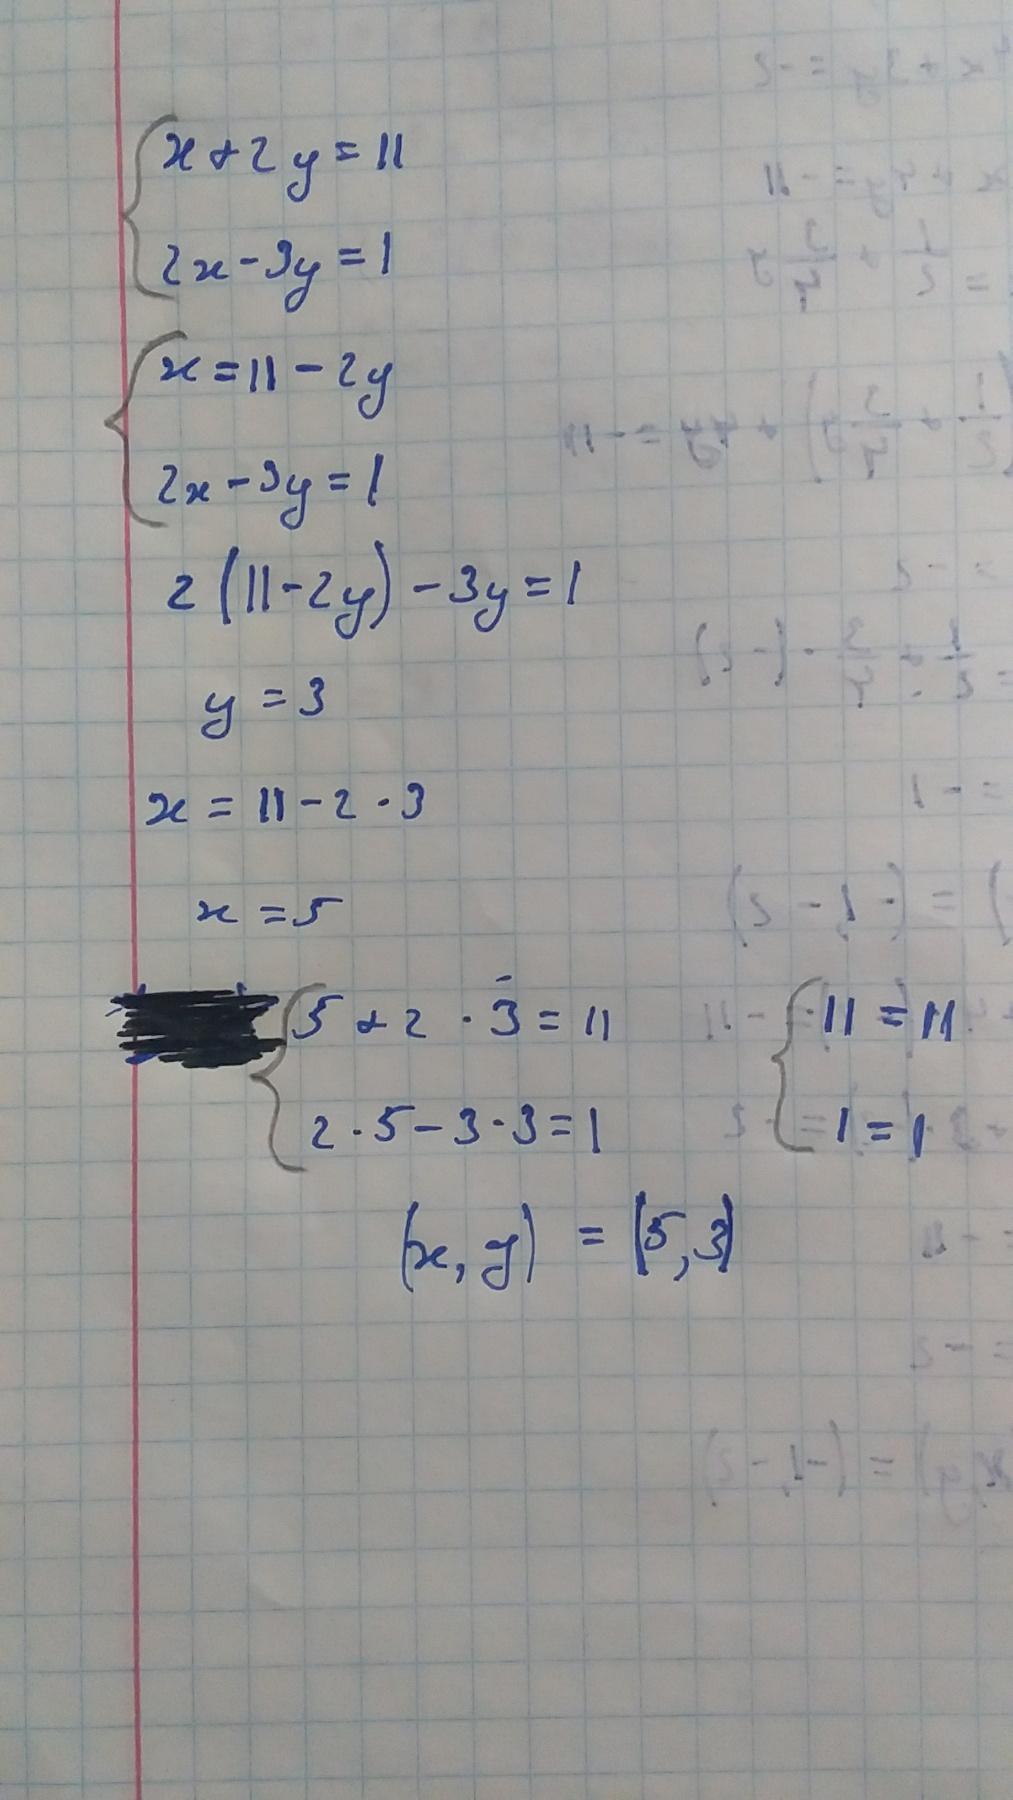 x + 2y = 11
2x - 3y = 1
x = 11 - 2y
2x - 3y = 1
2 (11 - 2y) - 3y = 1
y = 3
x = 11 - 2 · 3
x = 5
5 + 2 · 3 = 11 11 = 11
2 · 5 - 3 · 3 = 1 1 = 1
(x, y) = (5, 3)